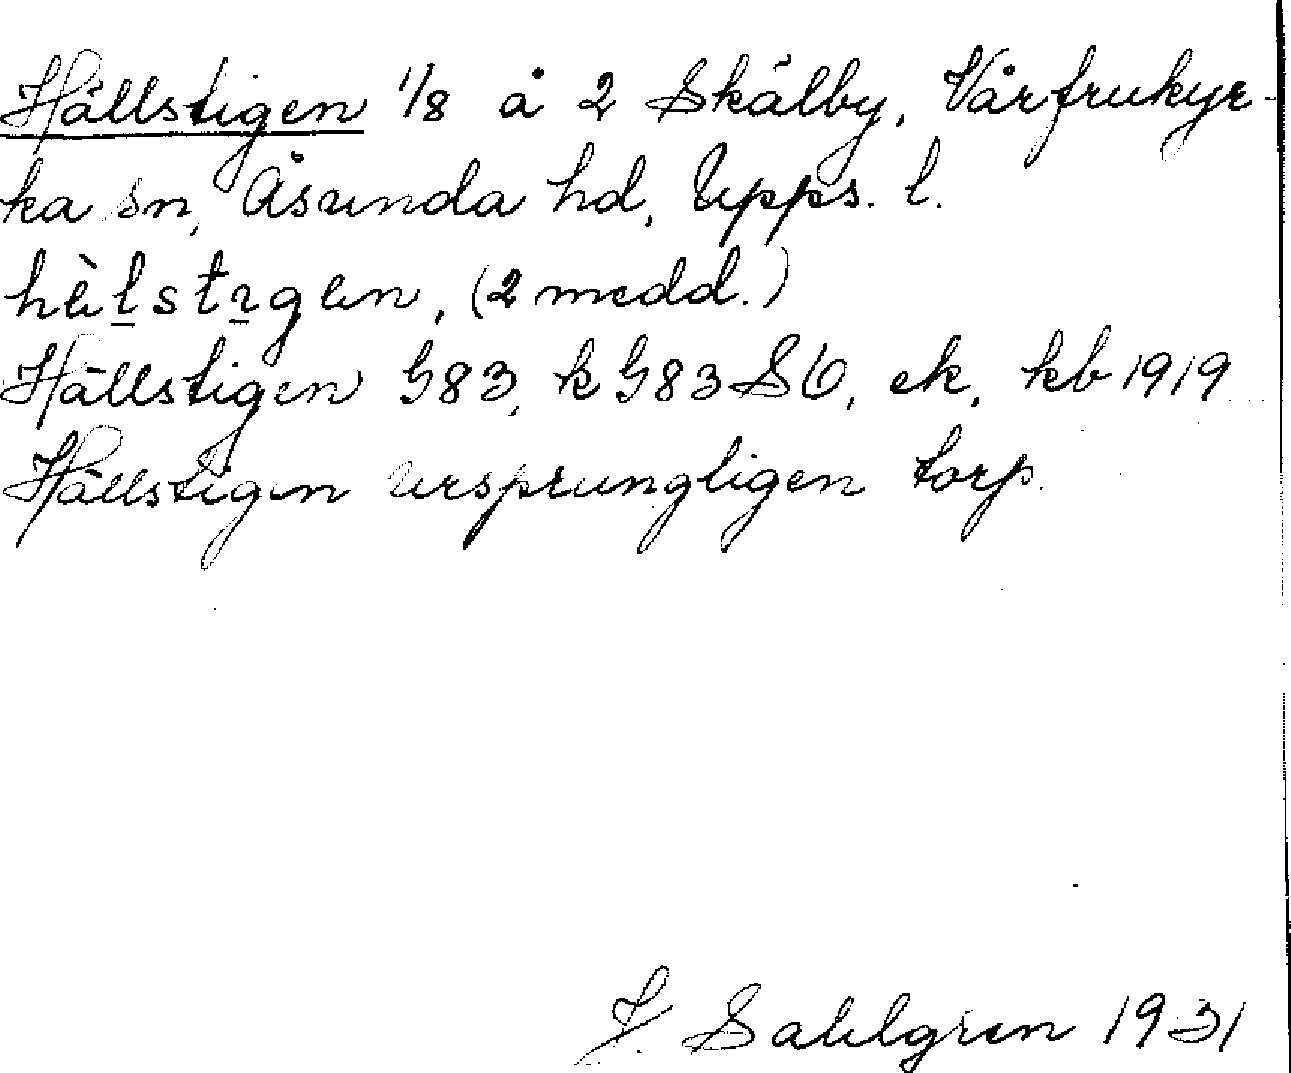 Hällstigen 1/8 å 2 Skälby, Vårfrukyr-
ka sn, Åsunda hd, Upps. l.
hèlstɩgen, (2 medd.)
Hällstigen G83, k G83 SÖ, ek, kb 1919
Hällstigen ursprungligen torp.
J. Sahlgren 1931